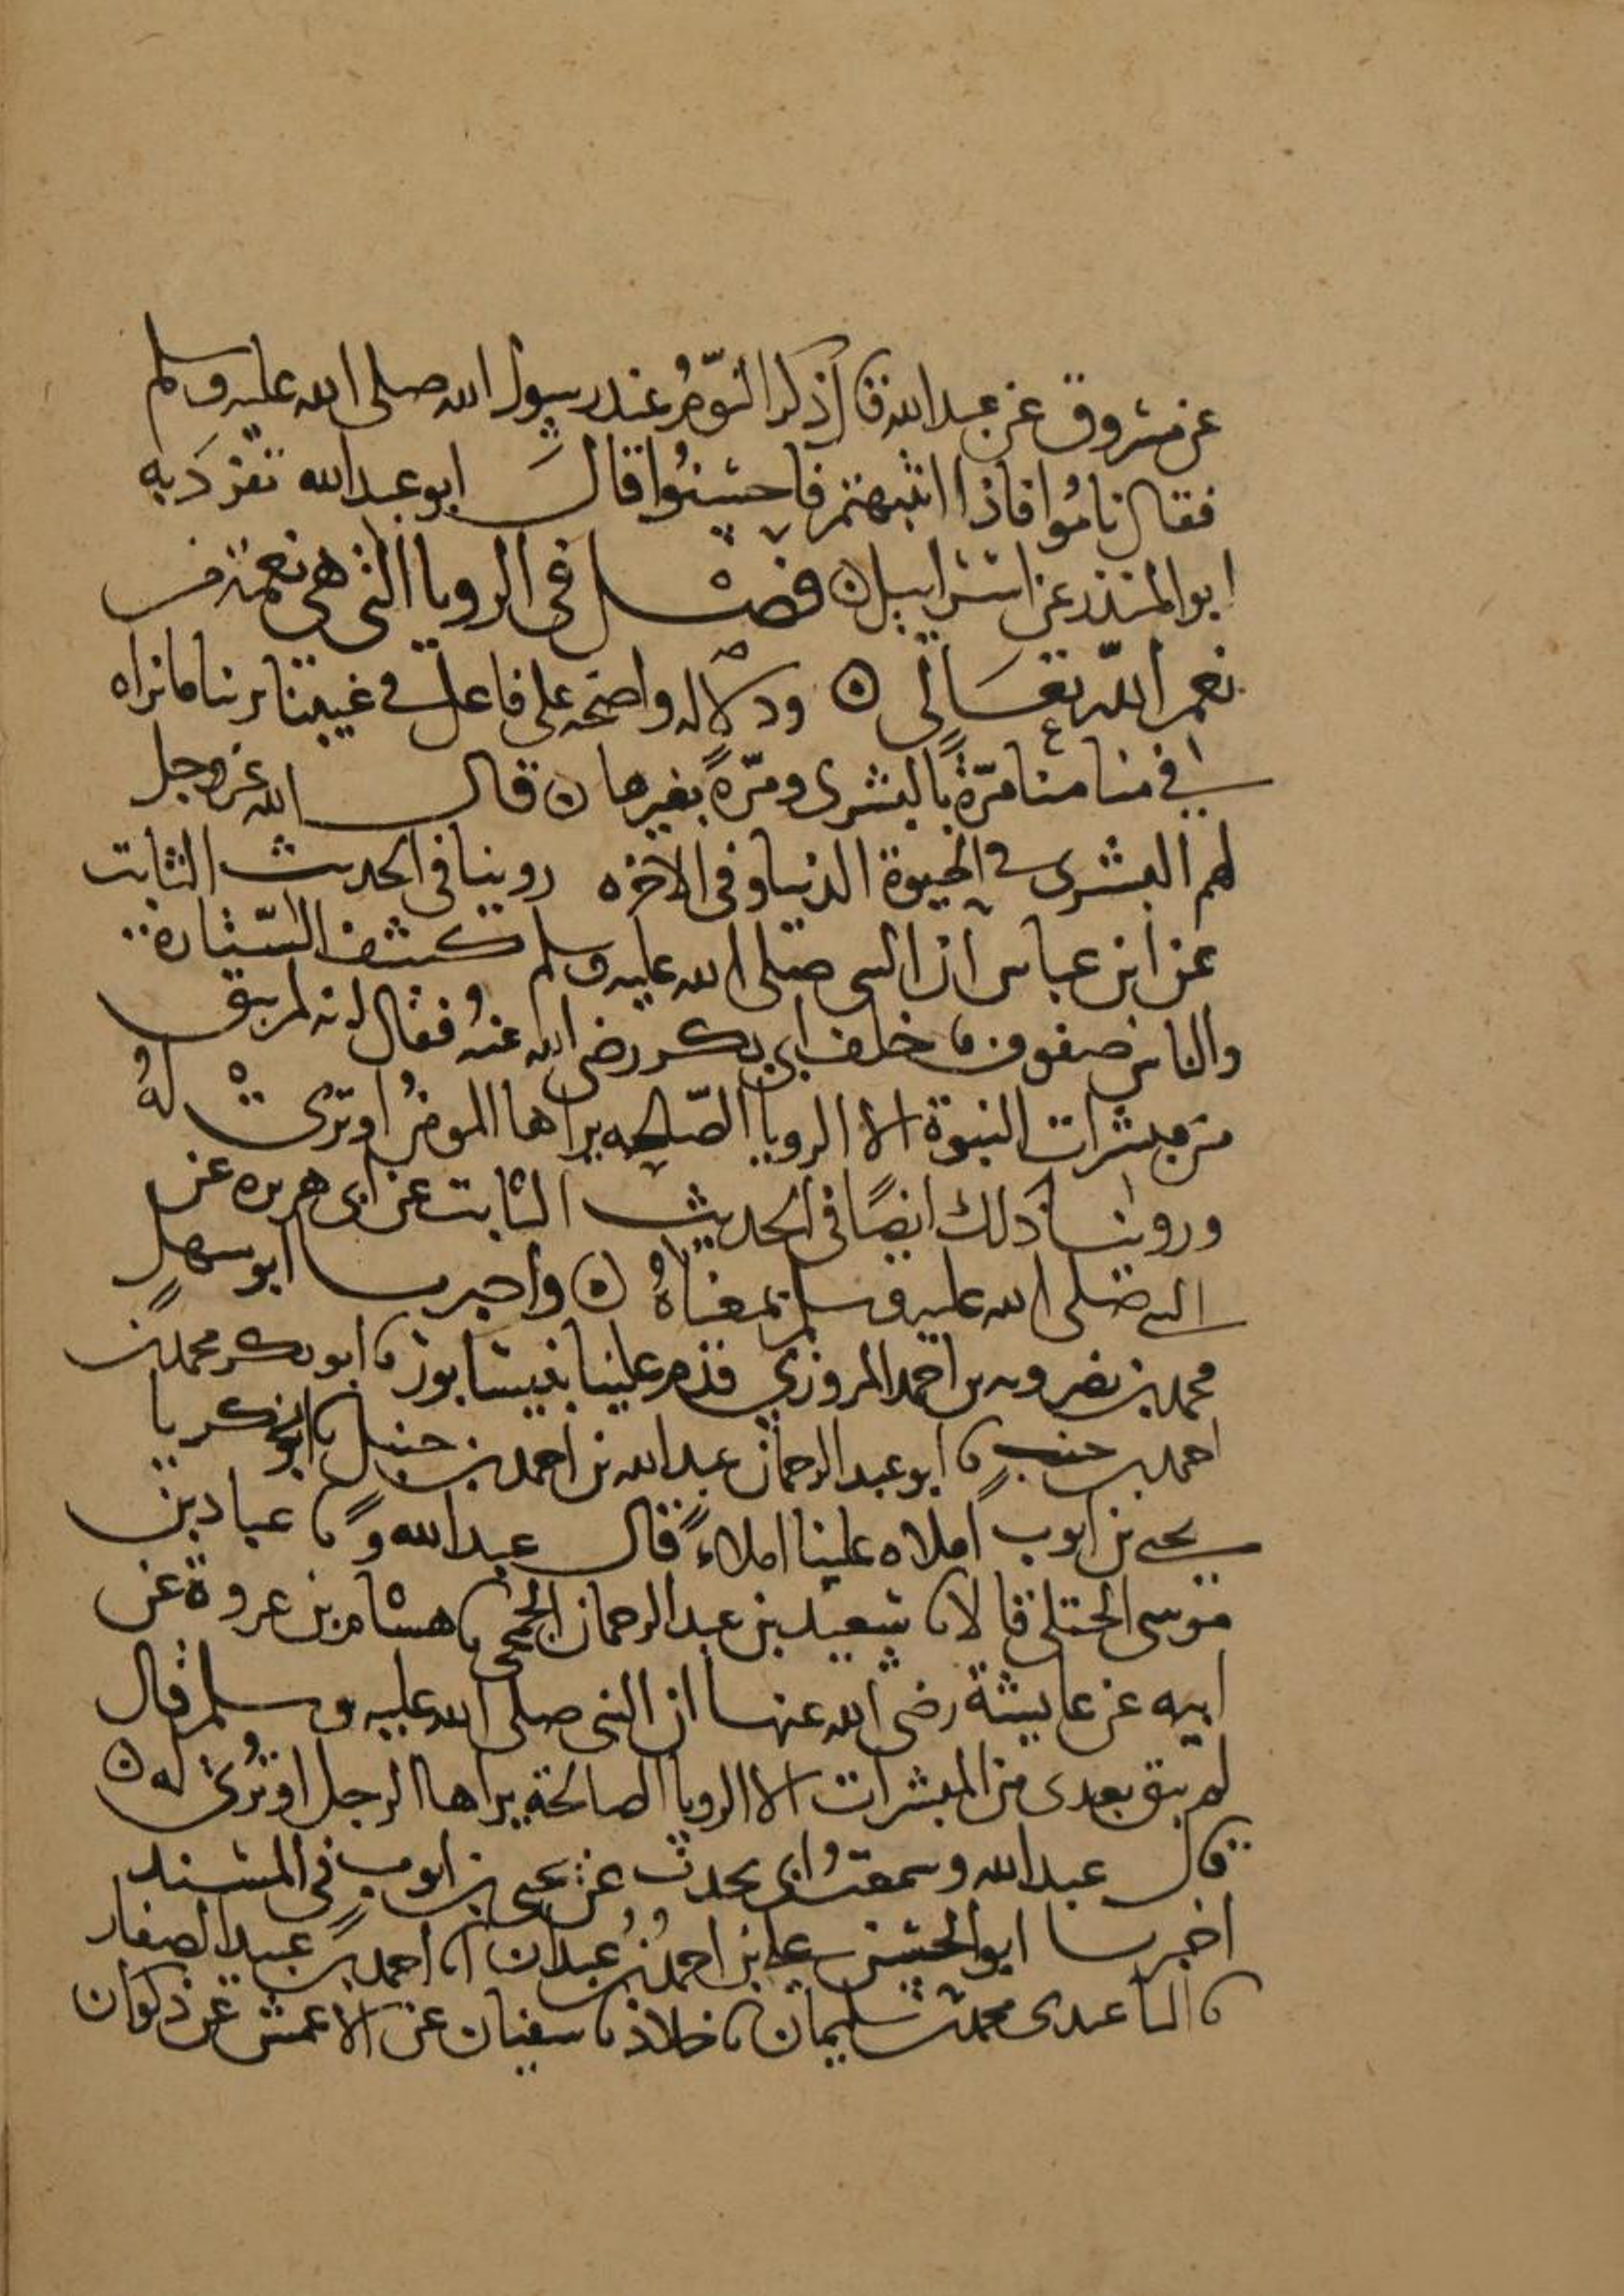 عن مسروق عن عبد الله قال ذكر النوم عند رسول الله صلى الله عليه وسلم
فقال ناموا فاذا انتبهتم فاحسنوا قال ابو عبد الله تفرد به
ابو المنذر عن اسراييل ه فصل في الرويا التي هي نعمة من
نعم الله تعالى ه ودلاله واضحه على فاعل في غيبتنا يرينا ما نراه
في منامنا مرة بالبشرى ومرة بغيرها ه قال الله عز وجل
لهم البشرى في الحيوة الدنيا وفي الاخره روينا في الحديث الثابت
عن ابن عباس ان النبي صلى الله عليه وسلم كشف الستارة
والناس صفوف خلف ابي بكر رضي الله عنه فقال انه لم يبق
من مبشرات النبوة الا الرويا الصلحه يراها المومن او ترى له
وروينا ذلك ايضا في الحديث الثابت عن ابي هريره عن
النبي صلى الله عليه وسلم بمعناه ه واخبرنا ابو سهل
محمد بن نصرويه بن احمد المروزي قدم علينا بنيسابور نا ابو بكر محمد بن
احمد بن خنب نا ابو عبد الرحمان عبد الله بن احمد بن حنبل نا ابو زكريا
يحيى بن ايوب املاه علينا املاء قال عبد الله و نا عباد بن
موسى الختلي قالا نا سعيد بن عبد الرحمان الجمحي نا هشام بن عروة عن
ابيه عن عايشة رضي الله عنها ان النبي صلى الله عليه وسلم قال
لم يبق بعدي من المبشرات الا الرويا الصالحة يراها الرجل او ترى له ه
قال عبد الله وسمعت ابي يحدث عن يحيى بن ايوب في المسند
اخبرنا ابو الحسن علي بن احمد بن عبدان انا احمد بن عبيد الصفار
نا الباغندي محمد بن سليمان نا خلاد نا سفيان عن الاعمش عن ذكوان